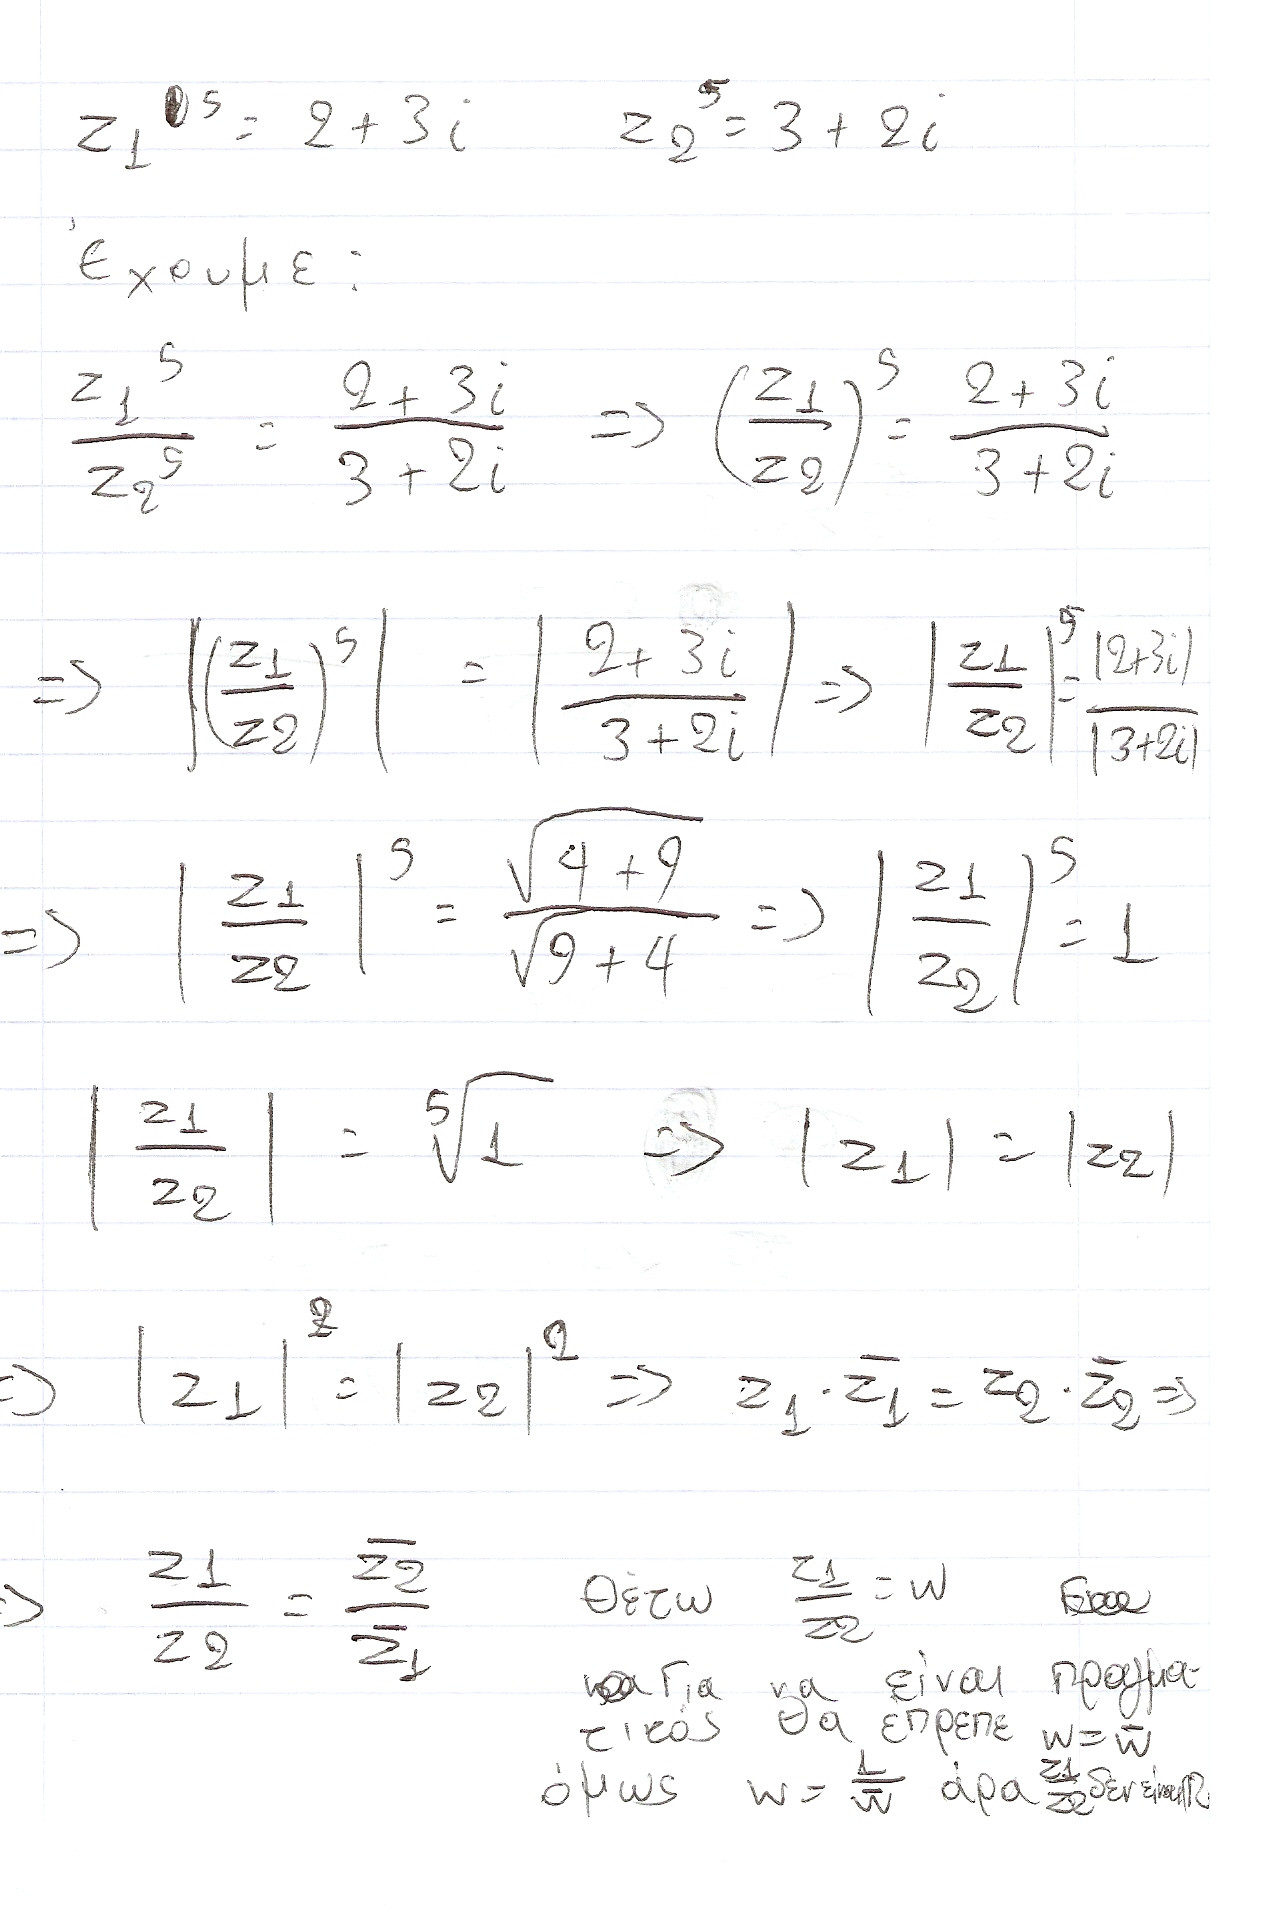 z₁⁵ = 2 + 3i z₂⁵ = 3 + 2i
Έχουμε :
z₁⁵/z₂⁵ = (2 + 3i)/(3 + 2i) => (z₁/z₂)⁵ = (2 + 3i)/(3 + 2i)
=> |(z₁/z₂)⁵| = |(2 + 3i)/(3 + 2i)| => |z₁/z₂|⁵ = |2+3i|/|3+2i|
=> |z₁/z₂|⁵ = √(4 + 9)/√(9 + 4) => |z₁/z₂|⁵ = 1
|z₁/z₂| = ⁵√1 => |z₁| = |z₂|
=> |z₁|² = |z₂|² => z₁ · z̄₁ = z₂ · z̄₂ =>
=> z₁/z₂ = z̄₂/z̄₁ Θέτω z₁/z₂ = w
Για να είναι πραγμα-
τικός θα έπρεπε w = w̄
όμως w = 1/w̄ άρα z₁/z₂ δεν είναι R